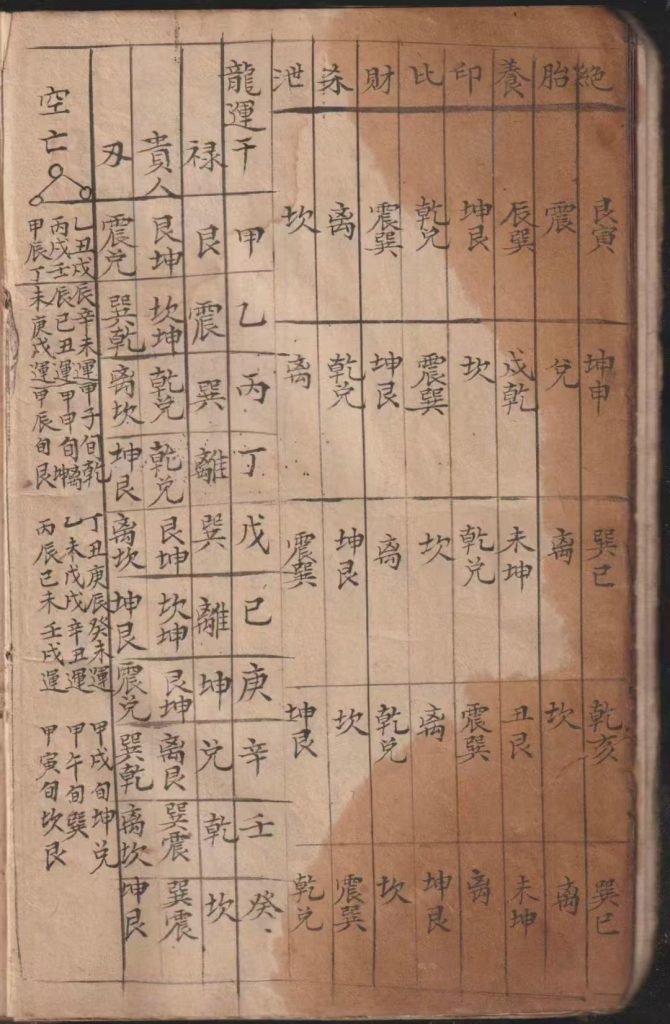 絕 艮寅 坤申 巽巳 乾亥 巽巳
胎 震 兌 离 坎 离
養 辰巽 戍乾 未坤 丑艮 未坤
印 坤艮 坎 乾兌 震巽 离
比 乾兌 震巽 坎 离 坤艮
財 震巽 坤艮 离 乾兌 坎
离 乾兌 坤艮 坎 震巽
泄 坎 离 震巽 坤艮 乾兌
龍運干 甲 乙 丙 丁 戊 己 庚 辛 壬 癸
禄 艮 震 巽 離 巽 離 坤 兌 乾 坎
貴人 艮坤 坎坤 乾兌 乾兌 艮坤 坎坤 艮坤 離艮 巽震 巽震
刃 震兌 巽乾 离坎 坤艮 离坎 坤艮 震兌 巽乾 离坎 坤艮
空亡
乙丑戊辰辛未運甲子旬乾
丙戌壬辰己丑運甲申旬坤離
甲辰丁未庚戌運甲辰旬艮
丁丑庚辰癸未運 甲戌旬坤兌
乙未戊戌辛丑運 甲午旬巽
丙辰己未壬戌運 甲寅旬坎艮